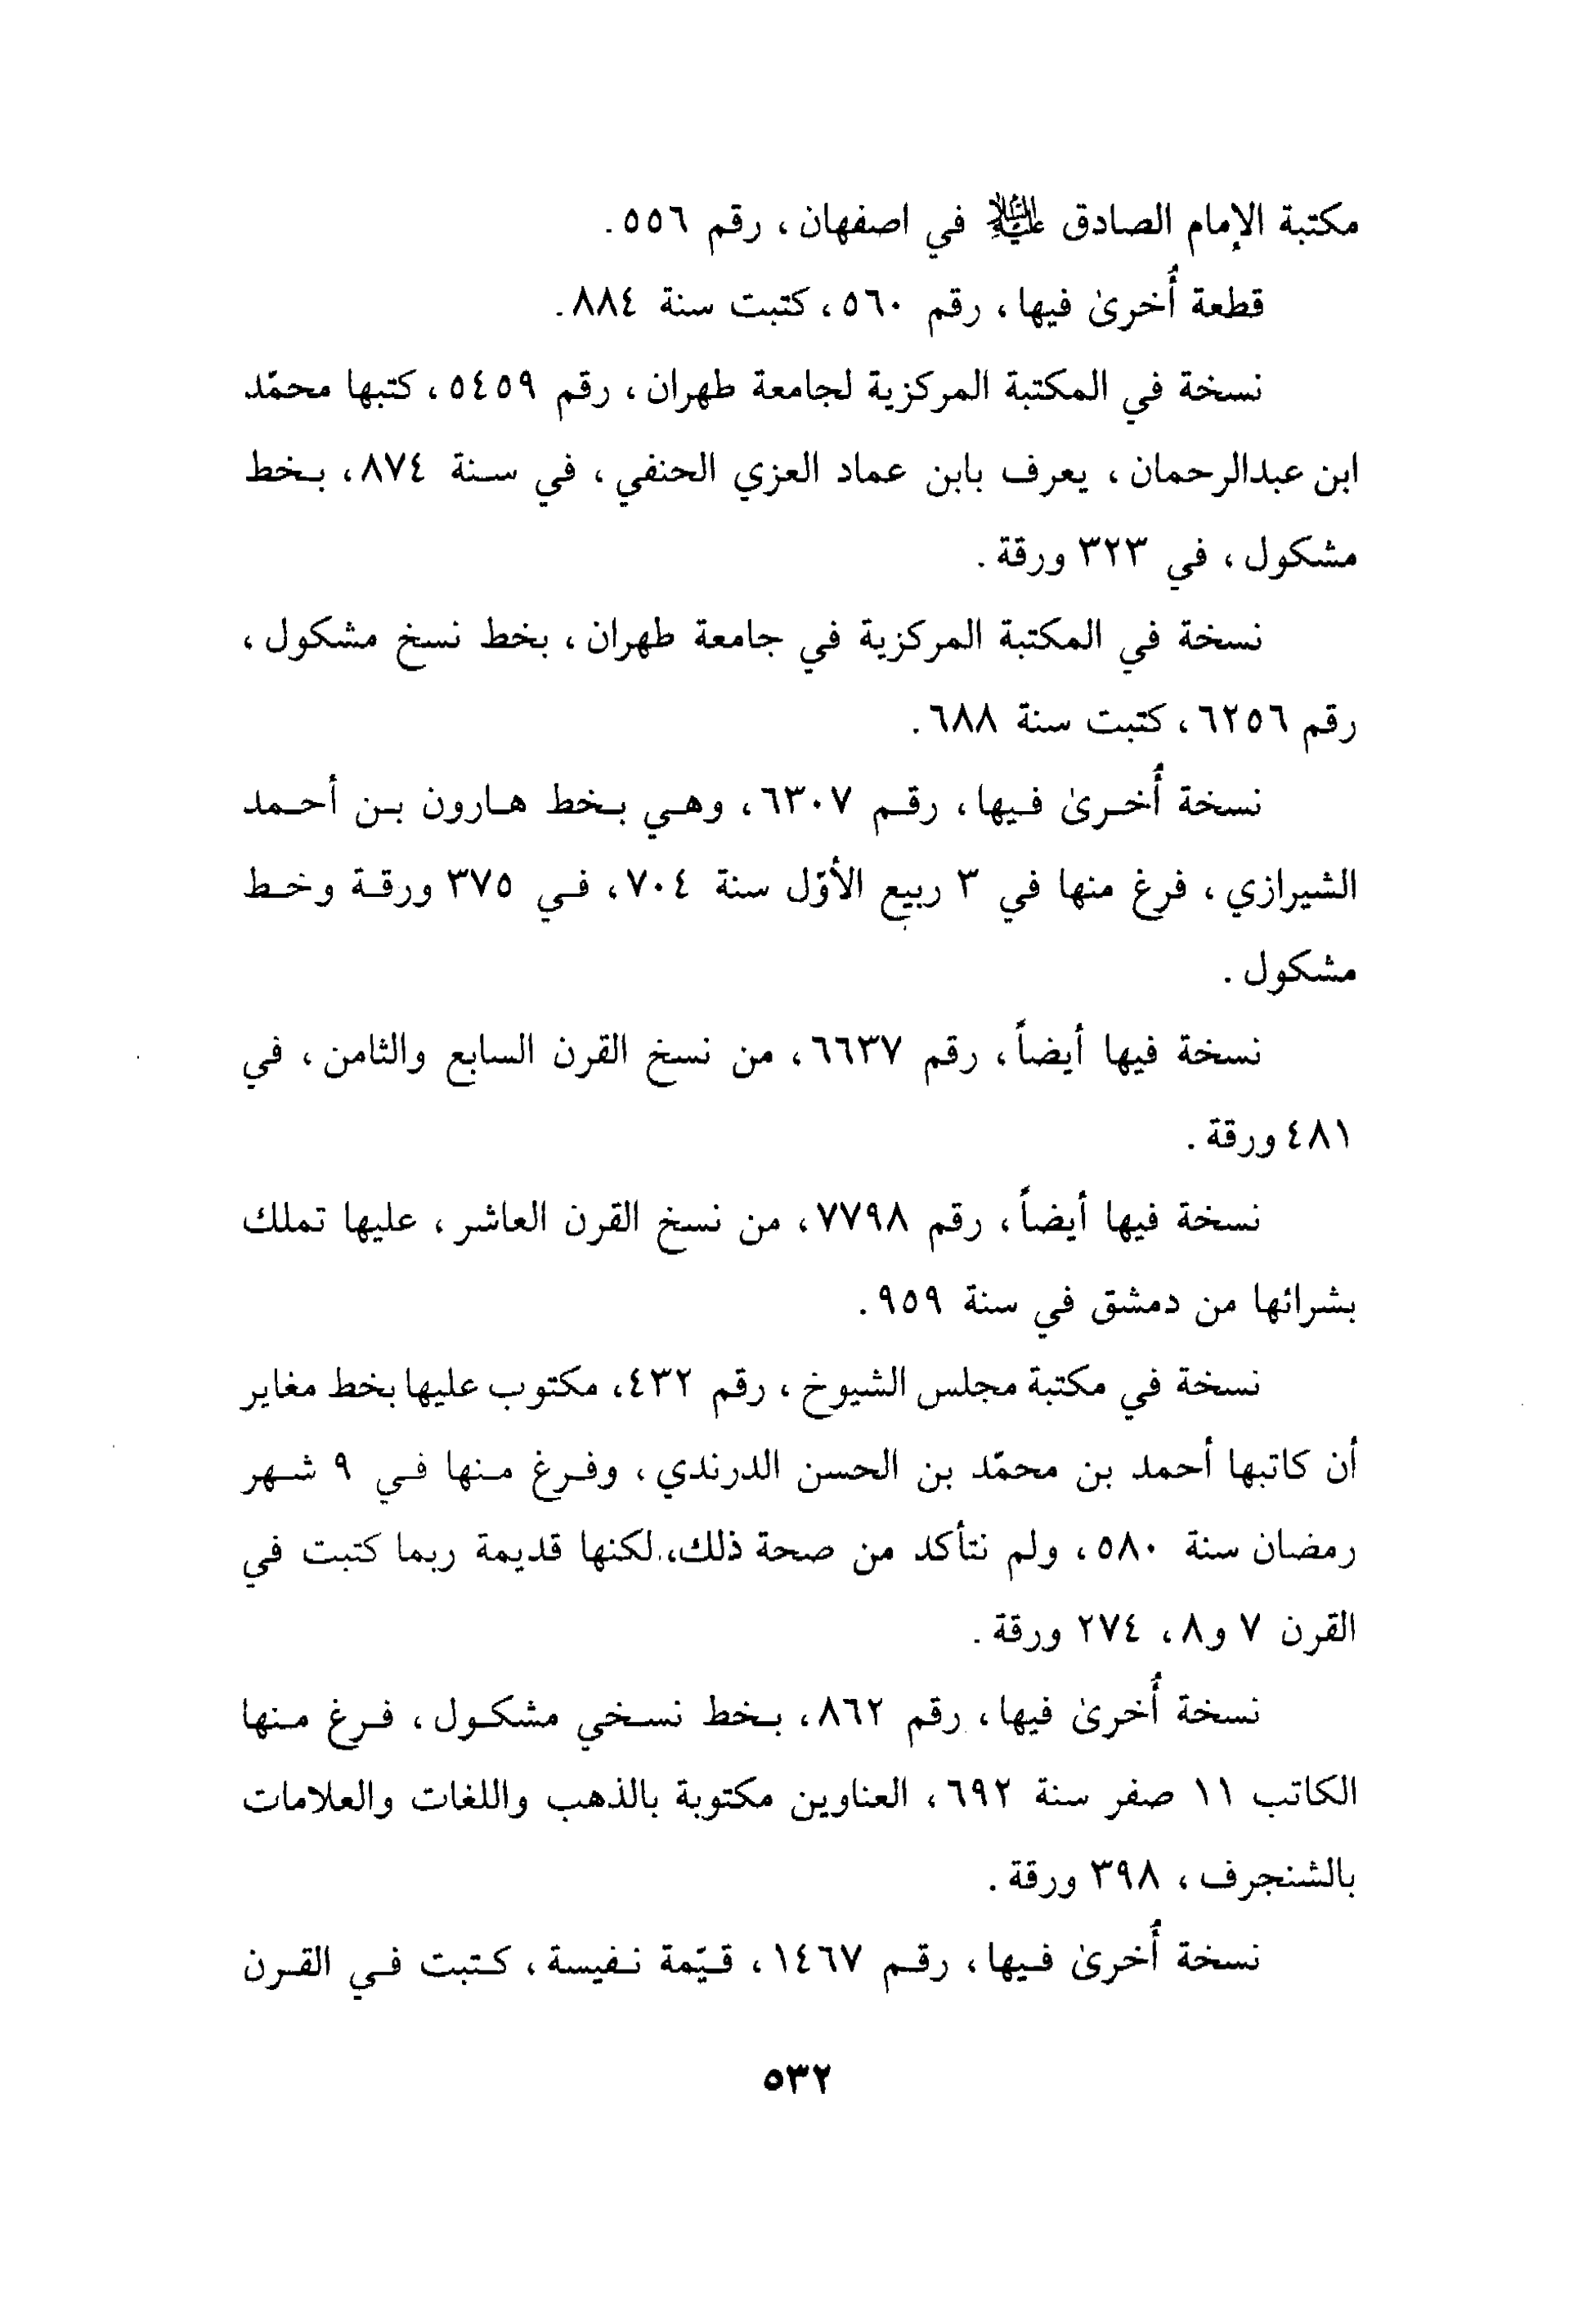 مكتبة الإمام الصادق عليه السلام في اصفهان ، رقم ٥٥٦ .
قطعة أُخرىٰ فيها ، رقم ٥٦٠ ، كتبت سنة ٨٨٤ .
نسخة في المكتبة المركزية لجامعة طهران ، رقم ٥٤٥٩ ، كتبها محمّد
ابن عبدالرحمان ، يعرف بابن عماد العزي الحنفي ، في سنة ٨٧٤ ، بخط
مشكول ، في ٣٢٣ ورقة .
نسخة في المكتبة المركزية في جامعة طهران ، بخط نسخ مشكول ،
رقم ٦٢٥٦ ، كتبت سنة ٦٨٨ .
نسخة أُخرىٰ فيها ، رقم ٦٣٠٧ ، وهي بخط هارون بن أحمد
الشيرازي ، فرغ منها في ٣ ربيع الأوّل سنة ٧٠٤ ، في ٣٧٥ ورقة وخط
مشكول .
نسخة فيها أيضاً ، رقم ٦٦٣٧ ، من نسخ القرن السابع والثامن ، في
٤٨١ ورقة .
نسخة فيها أيضاً ، رقم ٧٧٩٨ ، من نسخ القرن العاشر ، عليها تملك
بشرائها من دمشق في سنة ٩٥٩ .
نسخة في مكتبة مجلس الشيوخ ، رقم ٤٣٢ ، مكتوب عليها بخط مغاير
أن كاتبها أحمد بن محمّد بن الحسن الدرندي ، وفرغ منها في ٩ شهر
رمضان سنة ٥٨٠ ، ولم نتأكد من صحة ذلك ، لكنها قديمة ربما كتبت في
القرن ٧ و٨ ، ٢٧٤ ورقة .
نسخة أُخرىٰ فيها ، رقم ٨٦٢ ، بخط نسخي مشكول ، فرغ منها
الكاتب ١١ صفر سنة ٦٩٢ ، العناوين مكتوبة بالذهب واللغات والعلامات
بالشنجرف ، ٣٩٨ ورقة .
نسخة أُخرىٰ فيها ، رقم ١٤٦٧ ، قيّمة نفيسة ، كتبت في القرن
٥٣٢